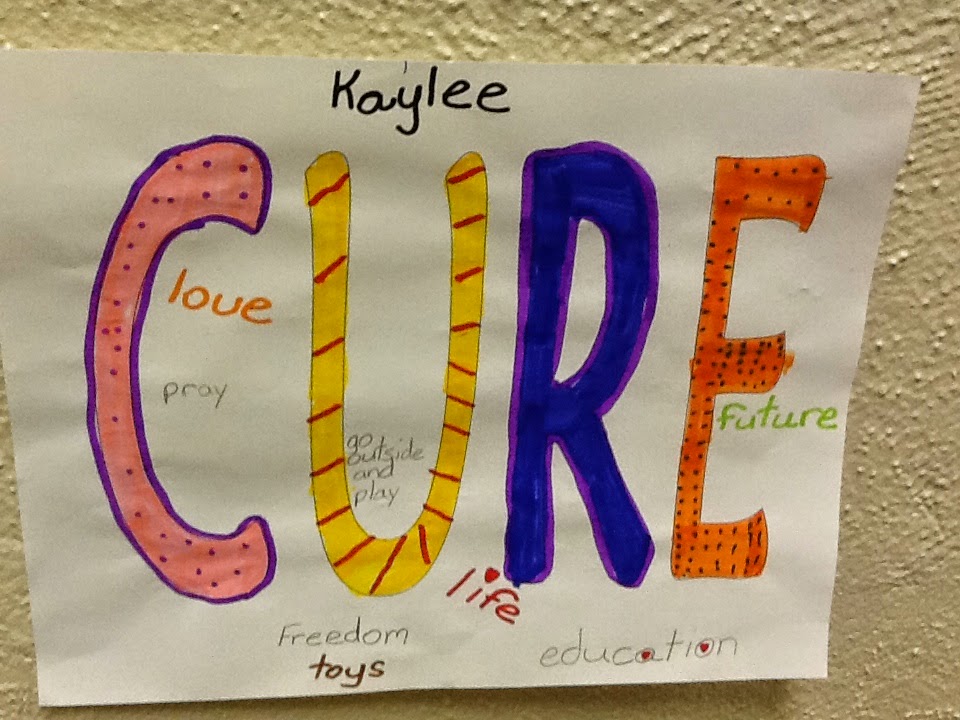 Kaylee
CURE
love
pray
go
outside
and
play
future
life
Freedom
toys
education